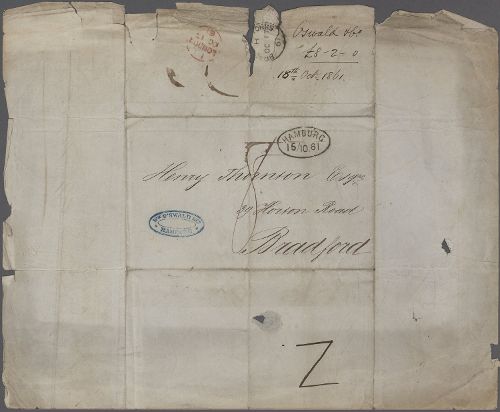 Oswald & Co
£8-2-0
15th Oct. 1861.
HAMBURG
15/10.61
Henry Thomson Esqre
29 Horton Road
Bradford
Wm O'SWALD & Co
HAMBURG
Z